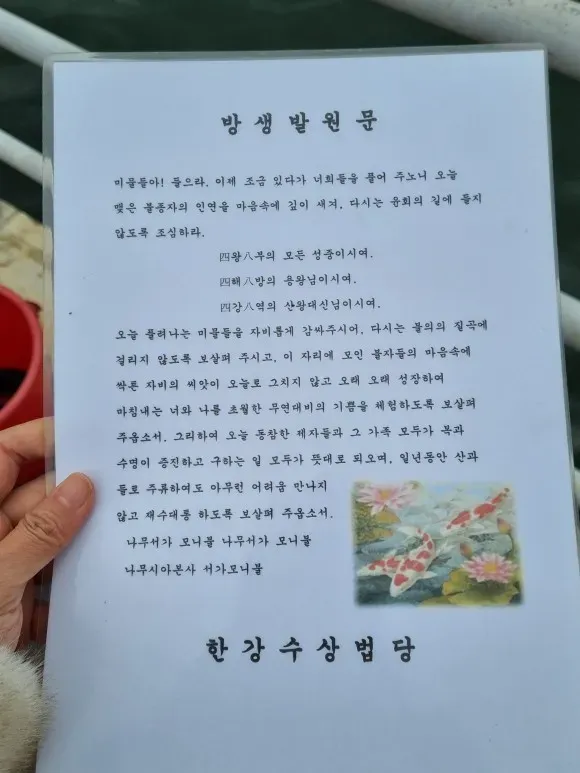 방생발원문
미물들아! 들으라. 이제 조금 있다가 너희들을 풀어 주노니 오늘
맺은 불종자의 인연을 마음속에 깊이 새겨, 다시는 윤회의 길에 들지
않도록 조심하라.
四왕八부의 모든 성중이시여.
四해八방의 용왕님이시여.
四강八역의 산왕대신님이시여.
오늘 풀려나는 미물들을 자비롭게 감싸주시어, 다시는 불의의 질곡에
걸리지 않도록 보살펴 주시고, 이 자리에 모인 불자들의 마음속에
싹튼 자비의 씨앗이 오늘로 그치지 않고 오래 오래 성장하여
마침내는 너와 나를 초월한 무연대비의 기쁨을 체험하도록 보살펴
주옵소서. 그리하여 오늘 동참한 제자들과 그 가족 모두가 복과
수명이 증진하고 구하는 일 모두가 뜻대로 되오며, 일년동안 산과
들로 주류하여도 아무런 어려움 만나지
않고 재수대통 하도록 보살펴 주옵소서.
나무서가 모니불 나무서가 모니불
나무시아본사 서가모니불
한강수상법당